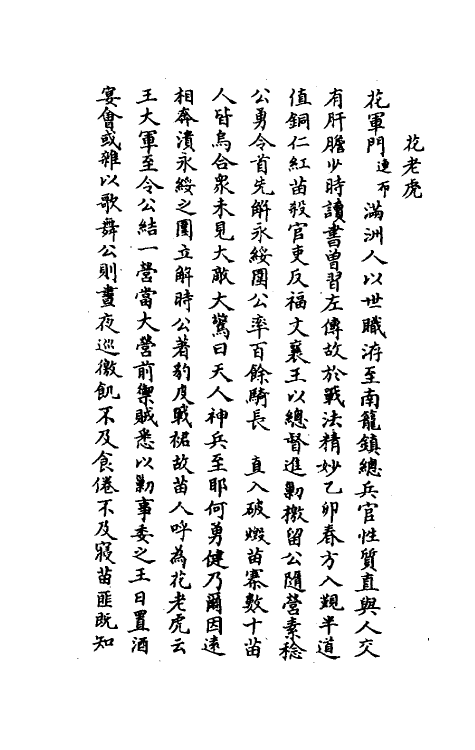 花老虎
花軍門連布滿洲人以世職洊至南籠鎮總兵官性質直與人交
有肝膽少時讀書曾習左傳故於戰法精妙乙卯春方入覲半道
值銅仁紅苗殺官吏反福文襄王以總督進勦檄留公隨營素稔
公勇令首先解永綏圍公率百餘騎長 直入破燬苗寨數十苗
人皆烏合衆未見大敵大驚曰天人神兵至耶何勇健乃爾因遠
相奔潰永綏之圍立解時公著豹皮戰裙故苗人呼為花老虎云
王大軍至令公結一營當大營前禦賊悉以勦事委之王日置酒
宴會或雜以歌舞公則晝夜巡徼飢不及食倦不及寢苗匪既知